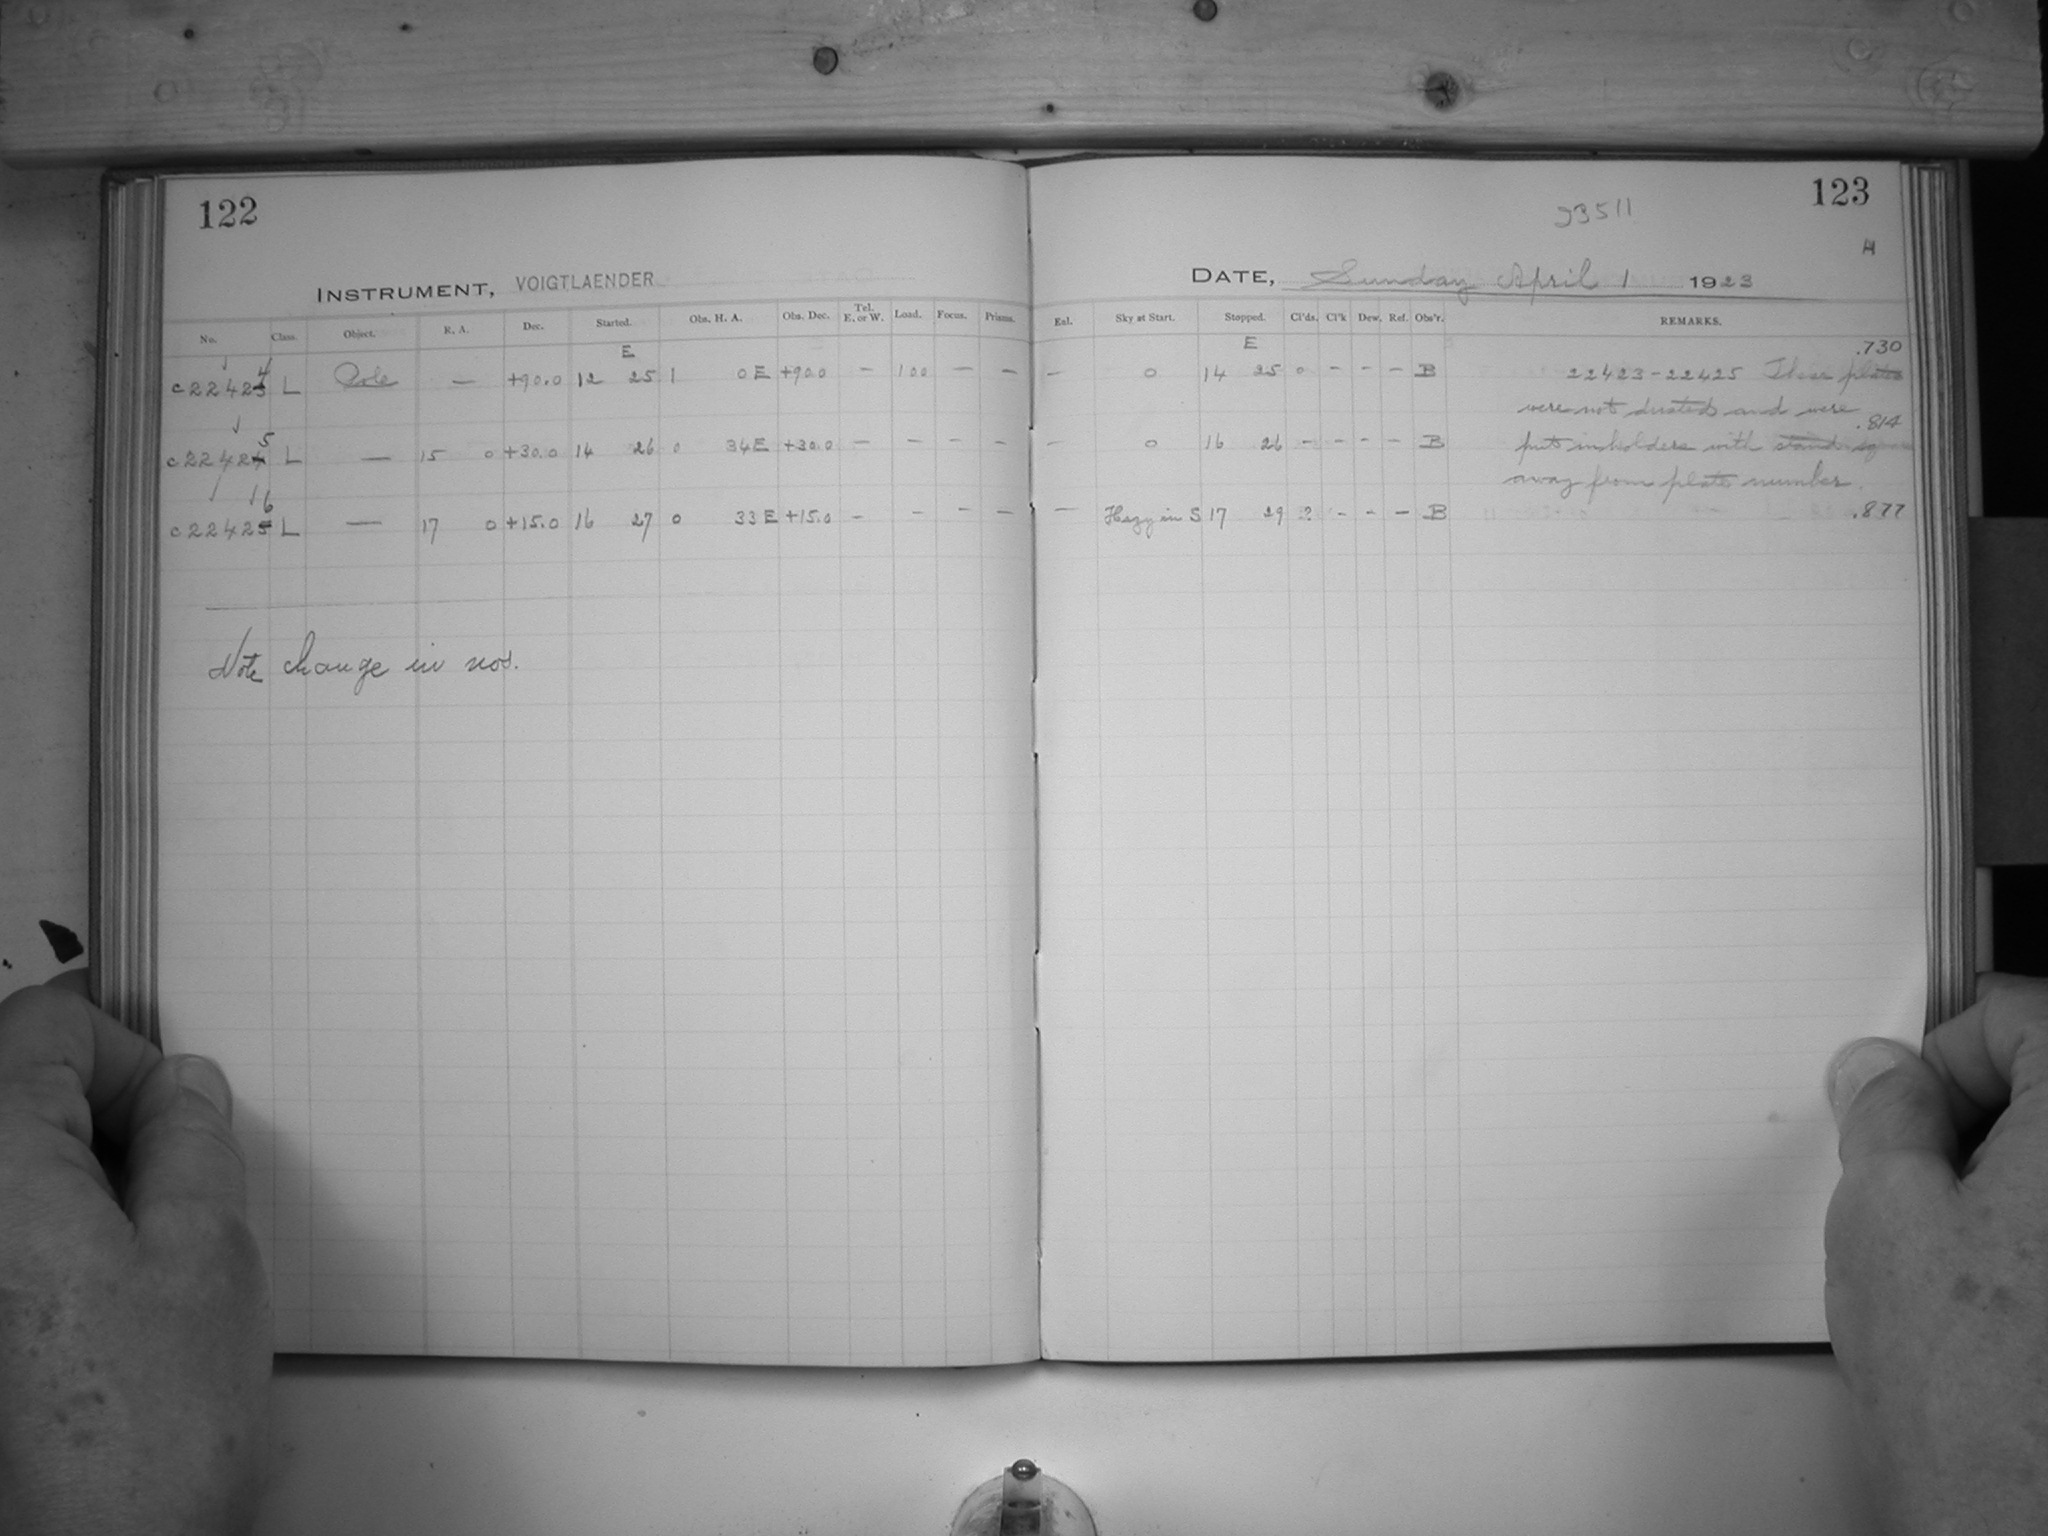 122
INSTRUMENT, VOIGTLAENDER
No. Class. Object. R. A. Dec. Started. Obs. H. A. Obs. Dec. Tel. E. or W. Load. Focus. Prisms.
E
4
c22423 L Pole — +90.0 12 25 1 0 E +90.0 — 100 — —
5
c22424 L — 15 0 +30.0 14 26 0 34 E +30.0 — — — —
6
c22425 L — 17 0 +15.0 16 27 0 33 E +15.0 — — — —
Note change in nos.
123
23511
H
DATE, Sunday April 1 1923
Enl. Sky at Start. Stopped. Cl'ds. Cl'k Dew. Ref. Obs'r. REMARKS.
E .730
— 0 14 25 0 — — — B 22423-22425 These plates
were not dusted and were
.814
— 0 16 26 — — — — B put in holders with
away from plate number.
— Hazy in S 17 29 ? — — — B .877